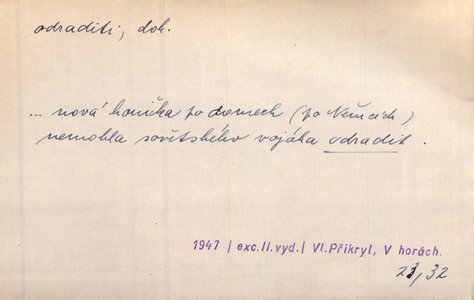 odraditi, dok.
... nová honička po domech (po Němcích)
nemohla sovětského vojáka odradit.
1947 | exc. II. vyd. | Vl. Přikryl, V horách.
23, 32